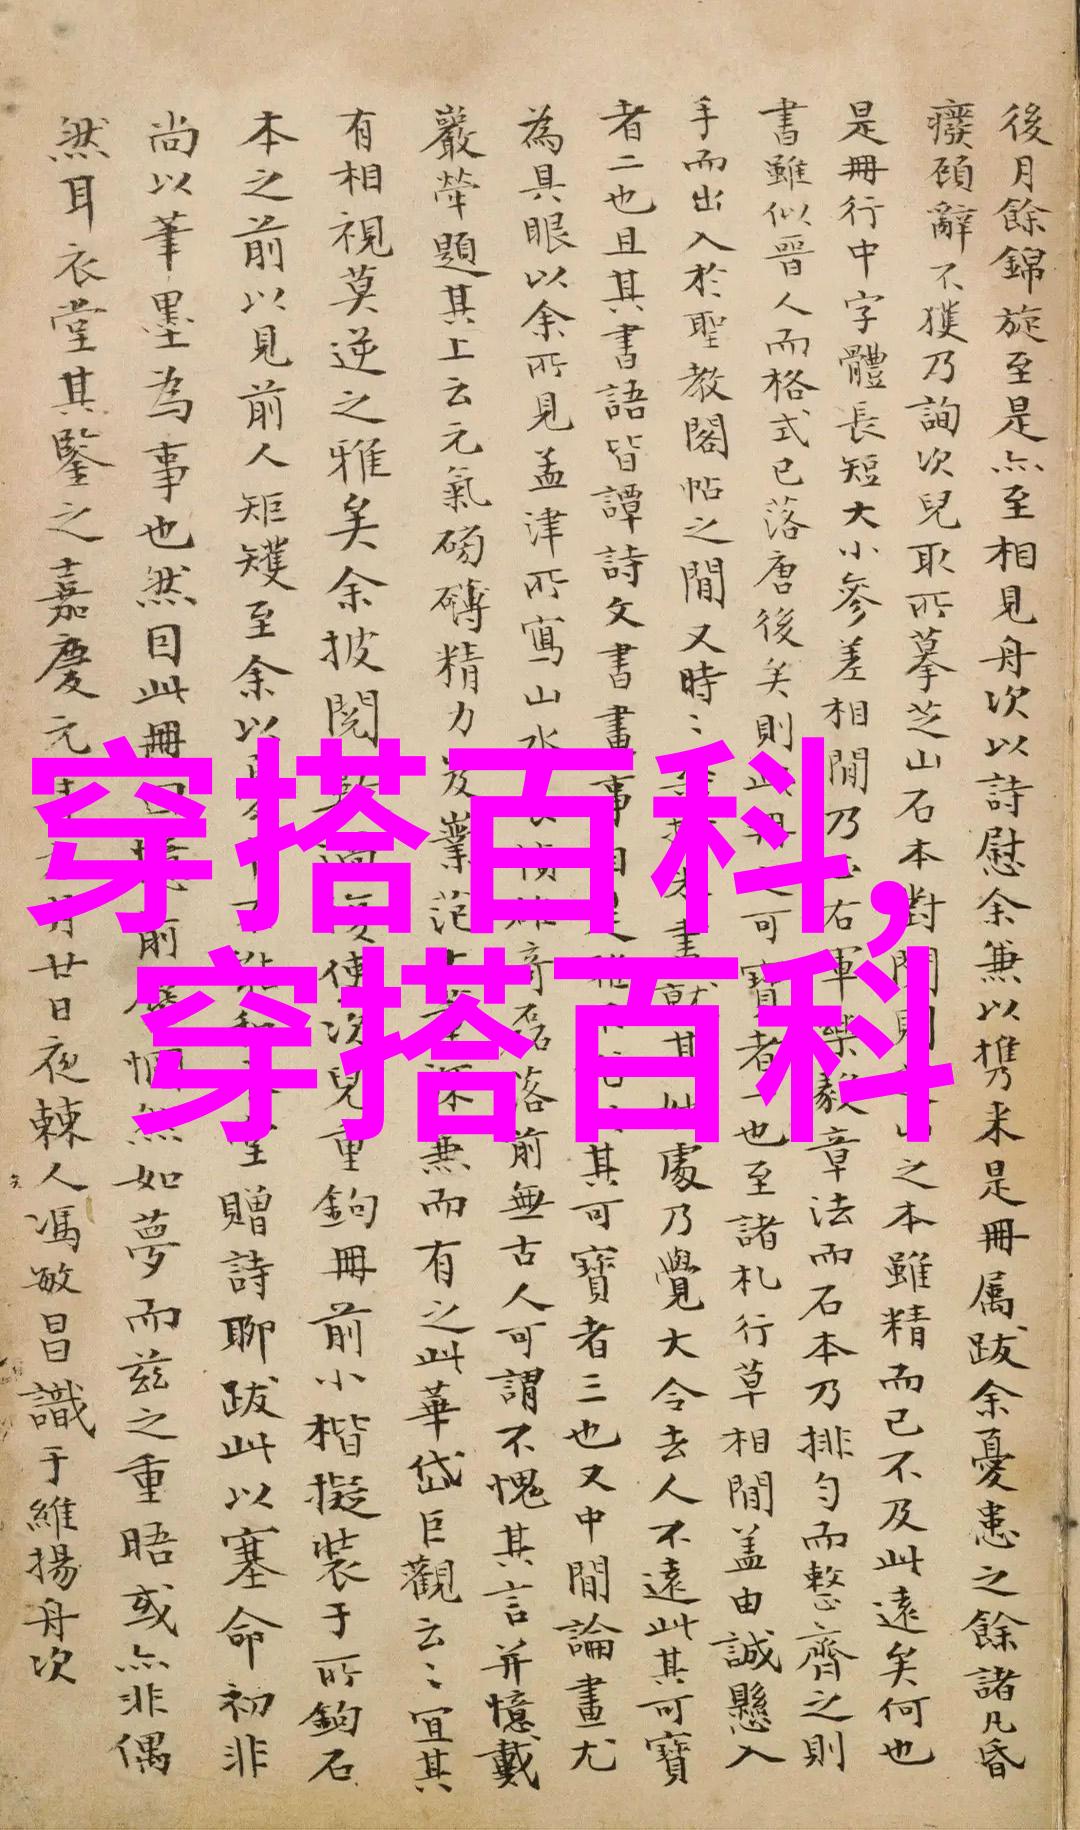 後月餘錦旋至是亦至相見舟次以詩慰余兼以攜来是冊属跋余憂患之餘諸凡昏
癈頋辭不獲乃詢次兒取所摹芝山石本對之本雖精而已不及此遠矣何也
是冊行中字體長短大小參差相間乃右軍樂毅章法而石本乃排勻而整齊之則
書雖似晉人而格式已落唐後矣則可寶者一也至諸札行草相間盖由誠懸入
手而出入於聖教閣帖之間又時〻其此處乃覺大令去人不遠此其可寶
者二也且其書語皆譚詩文書畫事其可寶者三也又中間論畫尤
為具眼以余所見孟津所寫山水奇磊落前無古人可謂不愧其言并憶戴
嚴犖題其上云元氣磅礴精力岌嶪范深兼而有之此華岱巨觀云〻宜其
有相視莫逆之雅矣余披閱使次兒重鉤冊前小楷擬裝于所鉤石
本之前以見前人矩矱至余以堂贈詩聊跋此以塞命初非
尚以筆墨為事也然因此冊前如夢而兹之重晤或亦非偶
然耳衣堂其鑒之嘉慶元月廿日夜棘人馮敏昌識于維揚舟次
穿搭百科,
穿搭百科